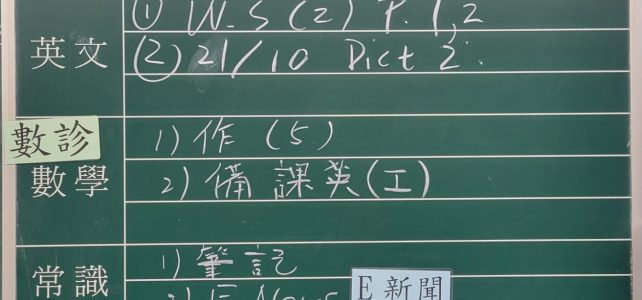 英文
① W.S (2) P. 1,2
② 21/10 Dict 2.
數診
數學
1) 作 (5)
2) 備課英(工)
常識
1) 筆記
2) E News
E新聞